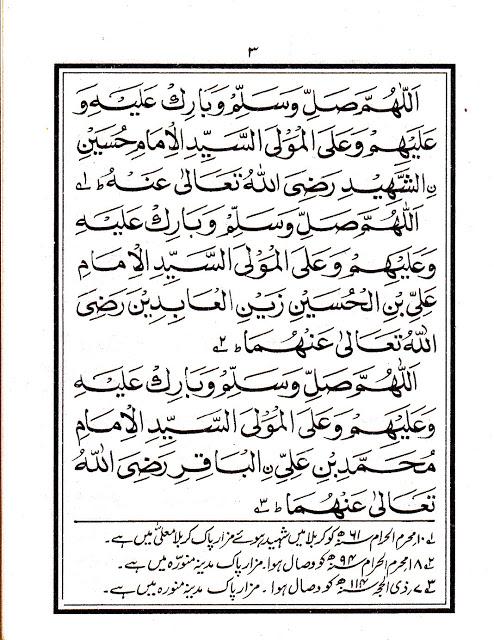 ٣
اَللّٰهُمَّ صَلِّ وَسَلِّمْ وَبَارِكْ عَلَيْهِ وَ
عَلَيْهِمْ وَعَلَى الْمَوْلَى السَّيِّدِ الْاِمَامِ حُسَيْنِ
نِ الشَّهِيْدِ رَضِىَ اللّٰهُ تَعَالٰى عَنْهُ ط ؎۱
اَللّٰهُمَّ صَلِّ وَسَلِّمْ وَبَارِكْ عَلَيْهِ
وَعَلَيْهِمْ وَعَلَى الْمَوْلَى السَّيِّدِ الْاِمَامِ
عَلِىِّ بْنِ الْحُسَيْنِ زَيْنِ الْعَابِدِيْنَ رَضِىَ
اللّٰهُ تَعَالٰى عَنْهُمَا ط ؎۲
اَللّٰهُمَّ صَلِّ وَسَلِّمْ وَبَارِكْ عَلَيْهِ
وَعَلَيْهِمْ وَعَلَى الْمَوْلَى السَّيِّدِ الْاِمَامِ
مُحَمَّدِ بْنِ عَلِىِّ نِ الْبَاقِرِ رَضِىَ اللّٰهُ
تَعَالٰى عَنْهُمَا ط ؎۳
؎۱ ۱۰ محرم الحرام ۶۱ھ کو کربلا میں شہید ہوئے مزار پاک کربلا معلیٰ میں ہے۔
؎۲ ۱۸ محرم الحرام ۹۴ھ کو وصال ہوا۔ مزار پاک مدینہ منورّہ میں ہے۔
؎۳ ۷؍ ذی الحجہ ۱۱۴ھ کو وصال ہوا۔ مزار پاک مدینہ منورہ میں ہے۔